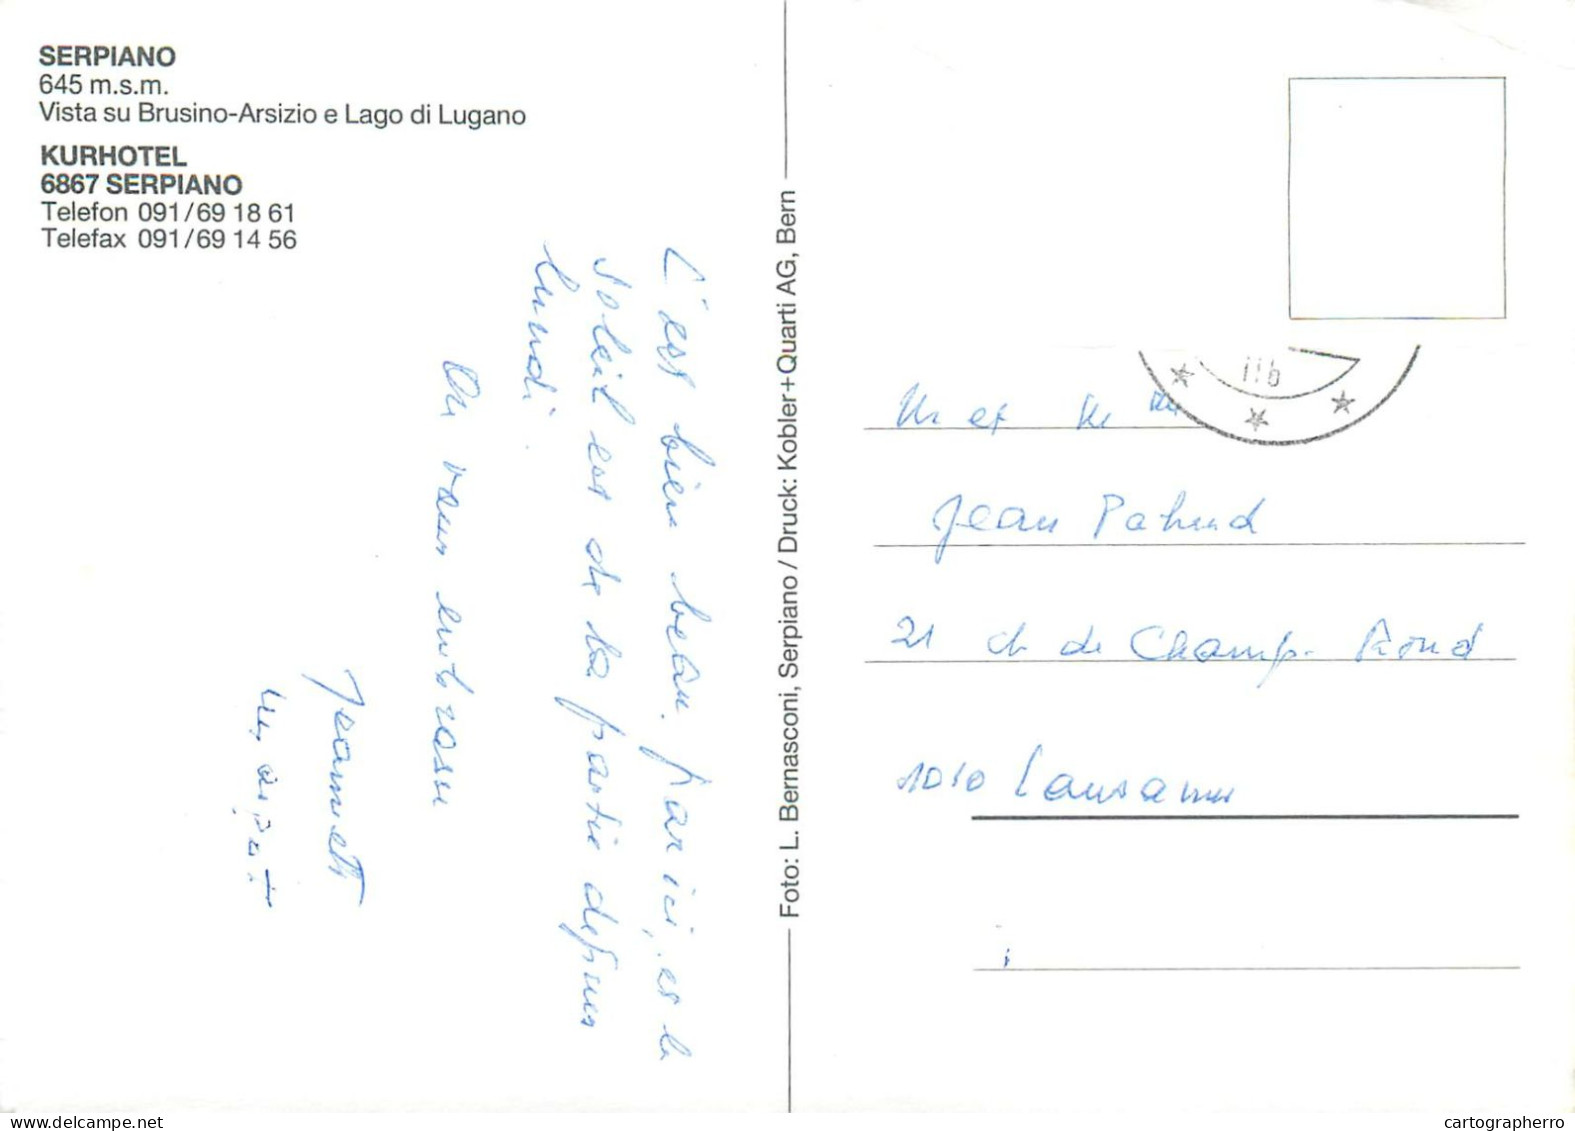 SERPIANO
645 m.s.m.
Vista su Brusino-Arsizio e Lago di Lugano
KURHOTEL
6867 SERPIANO
Telefon 091/69 18 61
Telefax 091/69 14 56
C'est bien beau par ici, et le
soleil est de la partie depuis
lundi
On vous embrasse
Jeannette
Foto: L. Bernasconi, Serpiano / Druck: Kobler+Quarti AG, Bern
11b
M et Mme
Jean Pahud
21 ch de Champ-Rond
1010 Lausanne
cartographerro